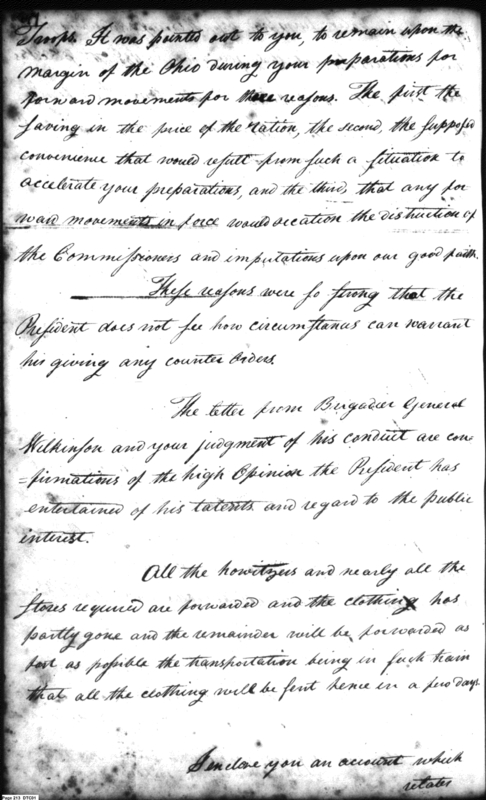 Troops. It was pointed out to you, to remain upon the
margin of the Ohio during your preparations for
forward movements for three reasons. The first the
saving in the price of the ration, the second, the supposed
convenience that would result from such a situation to
accelerate your preparations, and the third, that any for
ward movements in force would occation the distruction of
the Commissioners and imputations upon our good faith.
These reasons were so strong that the
President does not see how circumstances can warrant
his giving any counter orders.
The letter from Brigadier General
Wilkinson and your judgment of his conduct are con=
=firmations of the high Opinion the President has
entertained of his talents and regard to the public
interest.
All the howitzers and nearly all the
stores required are forwarded and the clothing has
partly gone and the remainder will be forwarded as
fast as possible the transportation being in such train
that all the clothing will be sent hence in a few days.
I enclose you an account which
relates
Page 213 DTC01